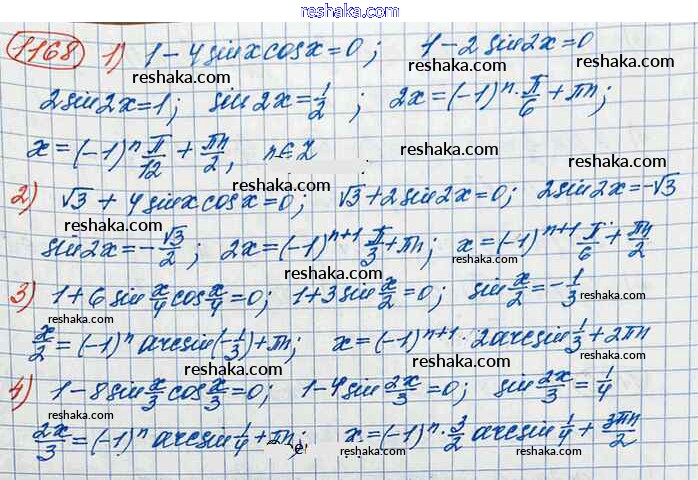 reshaka.com
1168 1) 1 - 4 sin x cos x = 0; 1 - 2 sin 2x = 0
reshaka.com reshaka.com
2 sin 2x = 1; sin 2x = 1/2; 2x = (-1)^n · π/6 + πn;
reshaka.com
x = (-1)^n π/12 + πn/2, n ∈ Z
reshaka.com reshaka.com
2) √3 + 4 sin x cos x = 0; √3 + 2 sin 2x = 0; 2 sin 2x = -√3
reshaka.com reshaka.com
sin 2x = -√3/2; 2x = (-1)^{n+1} π/3 + πn; x = (-1)^{n+1} π/6 + πn/2
reshaka.com reshaka.com
3) 1 + 6 sin x/4 cos x/4 = 0; 1 + 3 sin x/2 = 0; sin x/2 = -1/3
reshaka.com reshaka.com
x/2 = (-1)^n arcsin(-1/3) + πn; x = (-1)^{n+1} · 2 arcsin 1/3 + 2πn
reshaka.com reshaka.com
4) 1 - 8 sin x/3 cos x/3 = 0; 1 - 4 sin 2x/3 = 0; sin 2x/3 = 1/4
reshaka.com reshaka.com
2x/3 = (-1)^n arcsin 1/4 + πn; x = (-1)^n · 3/2 arcsin 1/4 + 3πn/2
reshaka.com reshaka.com